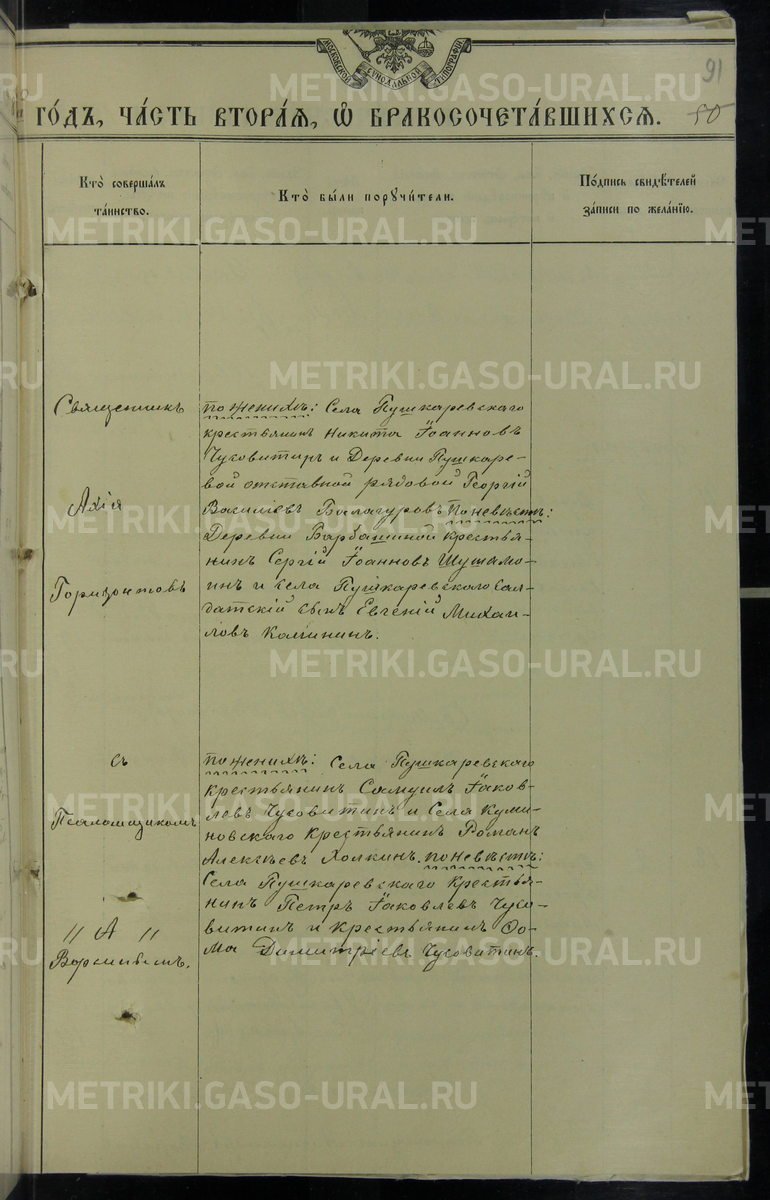 МОСКОВСКОЙ СУНОДАЛЬНОЙ ТИПОГРАФІИ
91
ГО́ДЪ, ЧА́СТЬ ВТОРА́Я, Ѡ҆ БРАКОСОЧЕТА́ВШИХСЯ.
50
Кто̀ соверша́лъ
та́инство.
Кто̀ бы́ли порꙋчи́тели.
По́дпись свидѣ́телей
за́писи по жела́нїю.
Священникъ
Горизонтовъ
съ
Псаломщикомъ
" А "
по женихѣ: Села Пушкаревскаго
крестьянинъ Никита Іоанновъ
Чусовитинъ и Деревни Пушкаре-
вой отставной рядовой Георгій
Василіевъ Балагуровъ по невѣстѣ:
Деревни Барбашиной крестья-
нинъ Сергій Іоанновъ
инъ и села Пушкаревскаго сол-
датскій сынъ Евгеній Михаи-
ловъ Калининъ.
по женихѣ: Села Пушкаревскаго
крестьянинъ Самуилъ Іаков-
левъ Чусовитинъ и Села Куми-
новскаго крестьянинъ Романъ
Алексѣевъ Холкинъ. по невѣстѣ:
Села Пушкаревскаго крестья-
нинъ Петръ Іаковлевъ Чусо-
витинъ и крестьянинъ Ѳо-
ма Димитріевъ Чусовитинъ.
METRIKI.GASO-URAL.RU